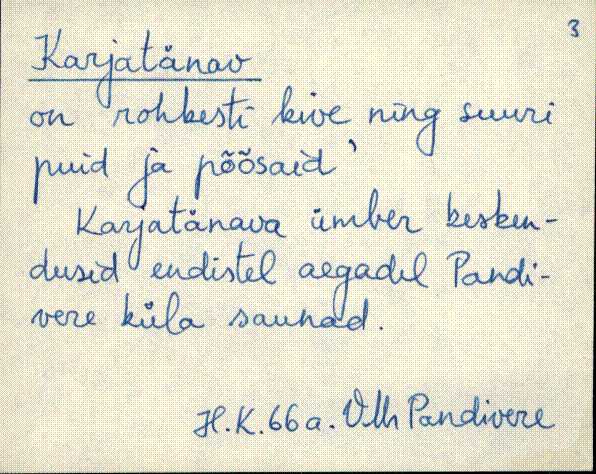 3
Karjatänav
on rohkesti kive ning suuri
puid ja põõsaid'
Karjatänava ümber kesken-
dusid endistel aegadel Pandi-
vere küla saunad.
H.K. 66 a. VMr Pandivere